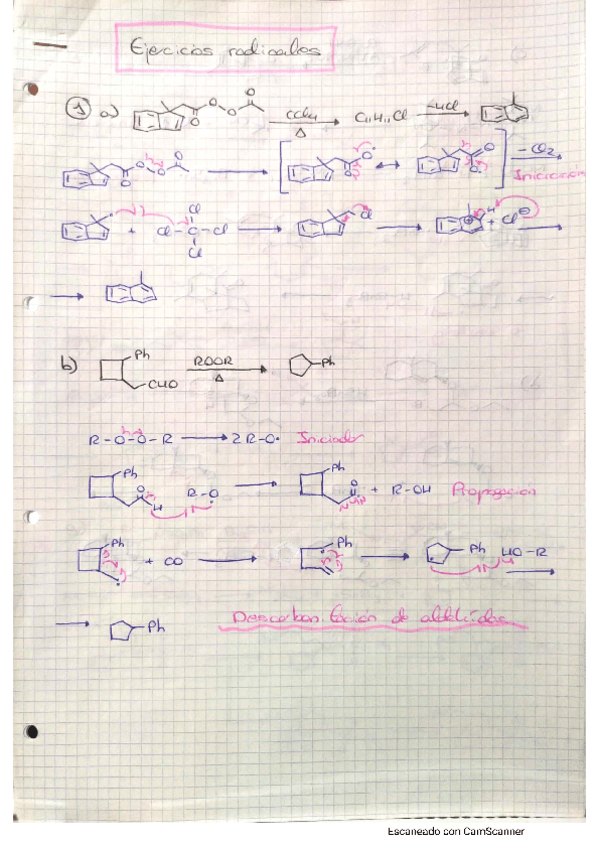 Ejercicios radicales
① a) O O O O CCl₄ Δ C₁₁H₁₁Cl -HCl
O O O O O• O O O• - CO₂
Iniciación
• + Cl-C-Cl Cl Cl Cl H + Cl⊖
b) Ph CHO ROOR Δ Ph
R-O-O-R 2 R-O• Iniciador
Ph O H R-O• Ph O + R-OH Propagación
Ph + CO Ph Ph HO-R
Ph Descarbonilación de aldehídos
Escaneado con CamScanner